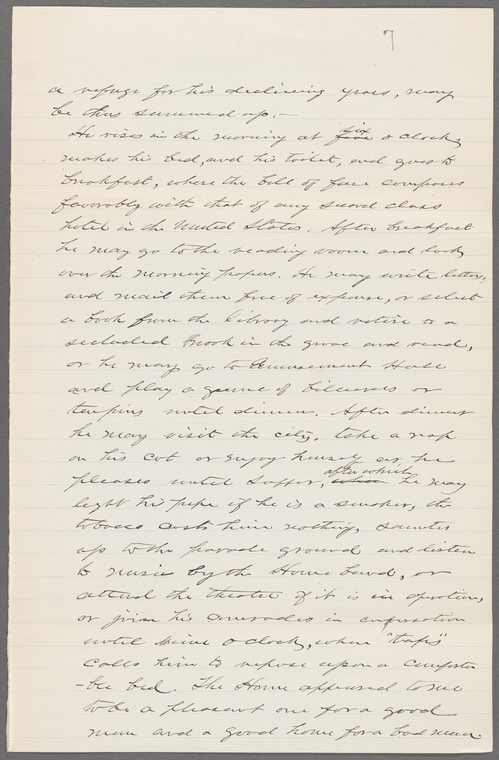 7
a refuge for his declining years, may
be thus summed up.—
He rises in the morning at five six o clock,
makes his bed, and his toilet, and goes to
breakfast, where the bill of fare compares
favorably with that of any second class
hotel in the United States. After breakfast
he may go to the reading room and look
over the morning papers. He may write letters,
and mail them free of expense, or select
a book from the library and retire to a
secluded nook in the grove and read,
or he may go to Amusement Hall
and play a game of billiards or
tenpins until dinner. After dinner
he may visit the city, take a nap
on his cot or enjoy himself as he
pleases until supper, when after which he may
light his pipe if he is a smoker, the
tobacco costs him nothing, saunter
up to the parade ground and listen
to music by the Home band, or
attend the theater if it is in operation,
or join his comrades in conversation
until nine o clock, when "taps"
calls him to repose upon a comforta
-ble bed. The Home appeared to me
to be a pleasant one for a good
man and a good home for a bad man.